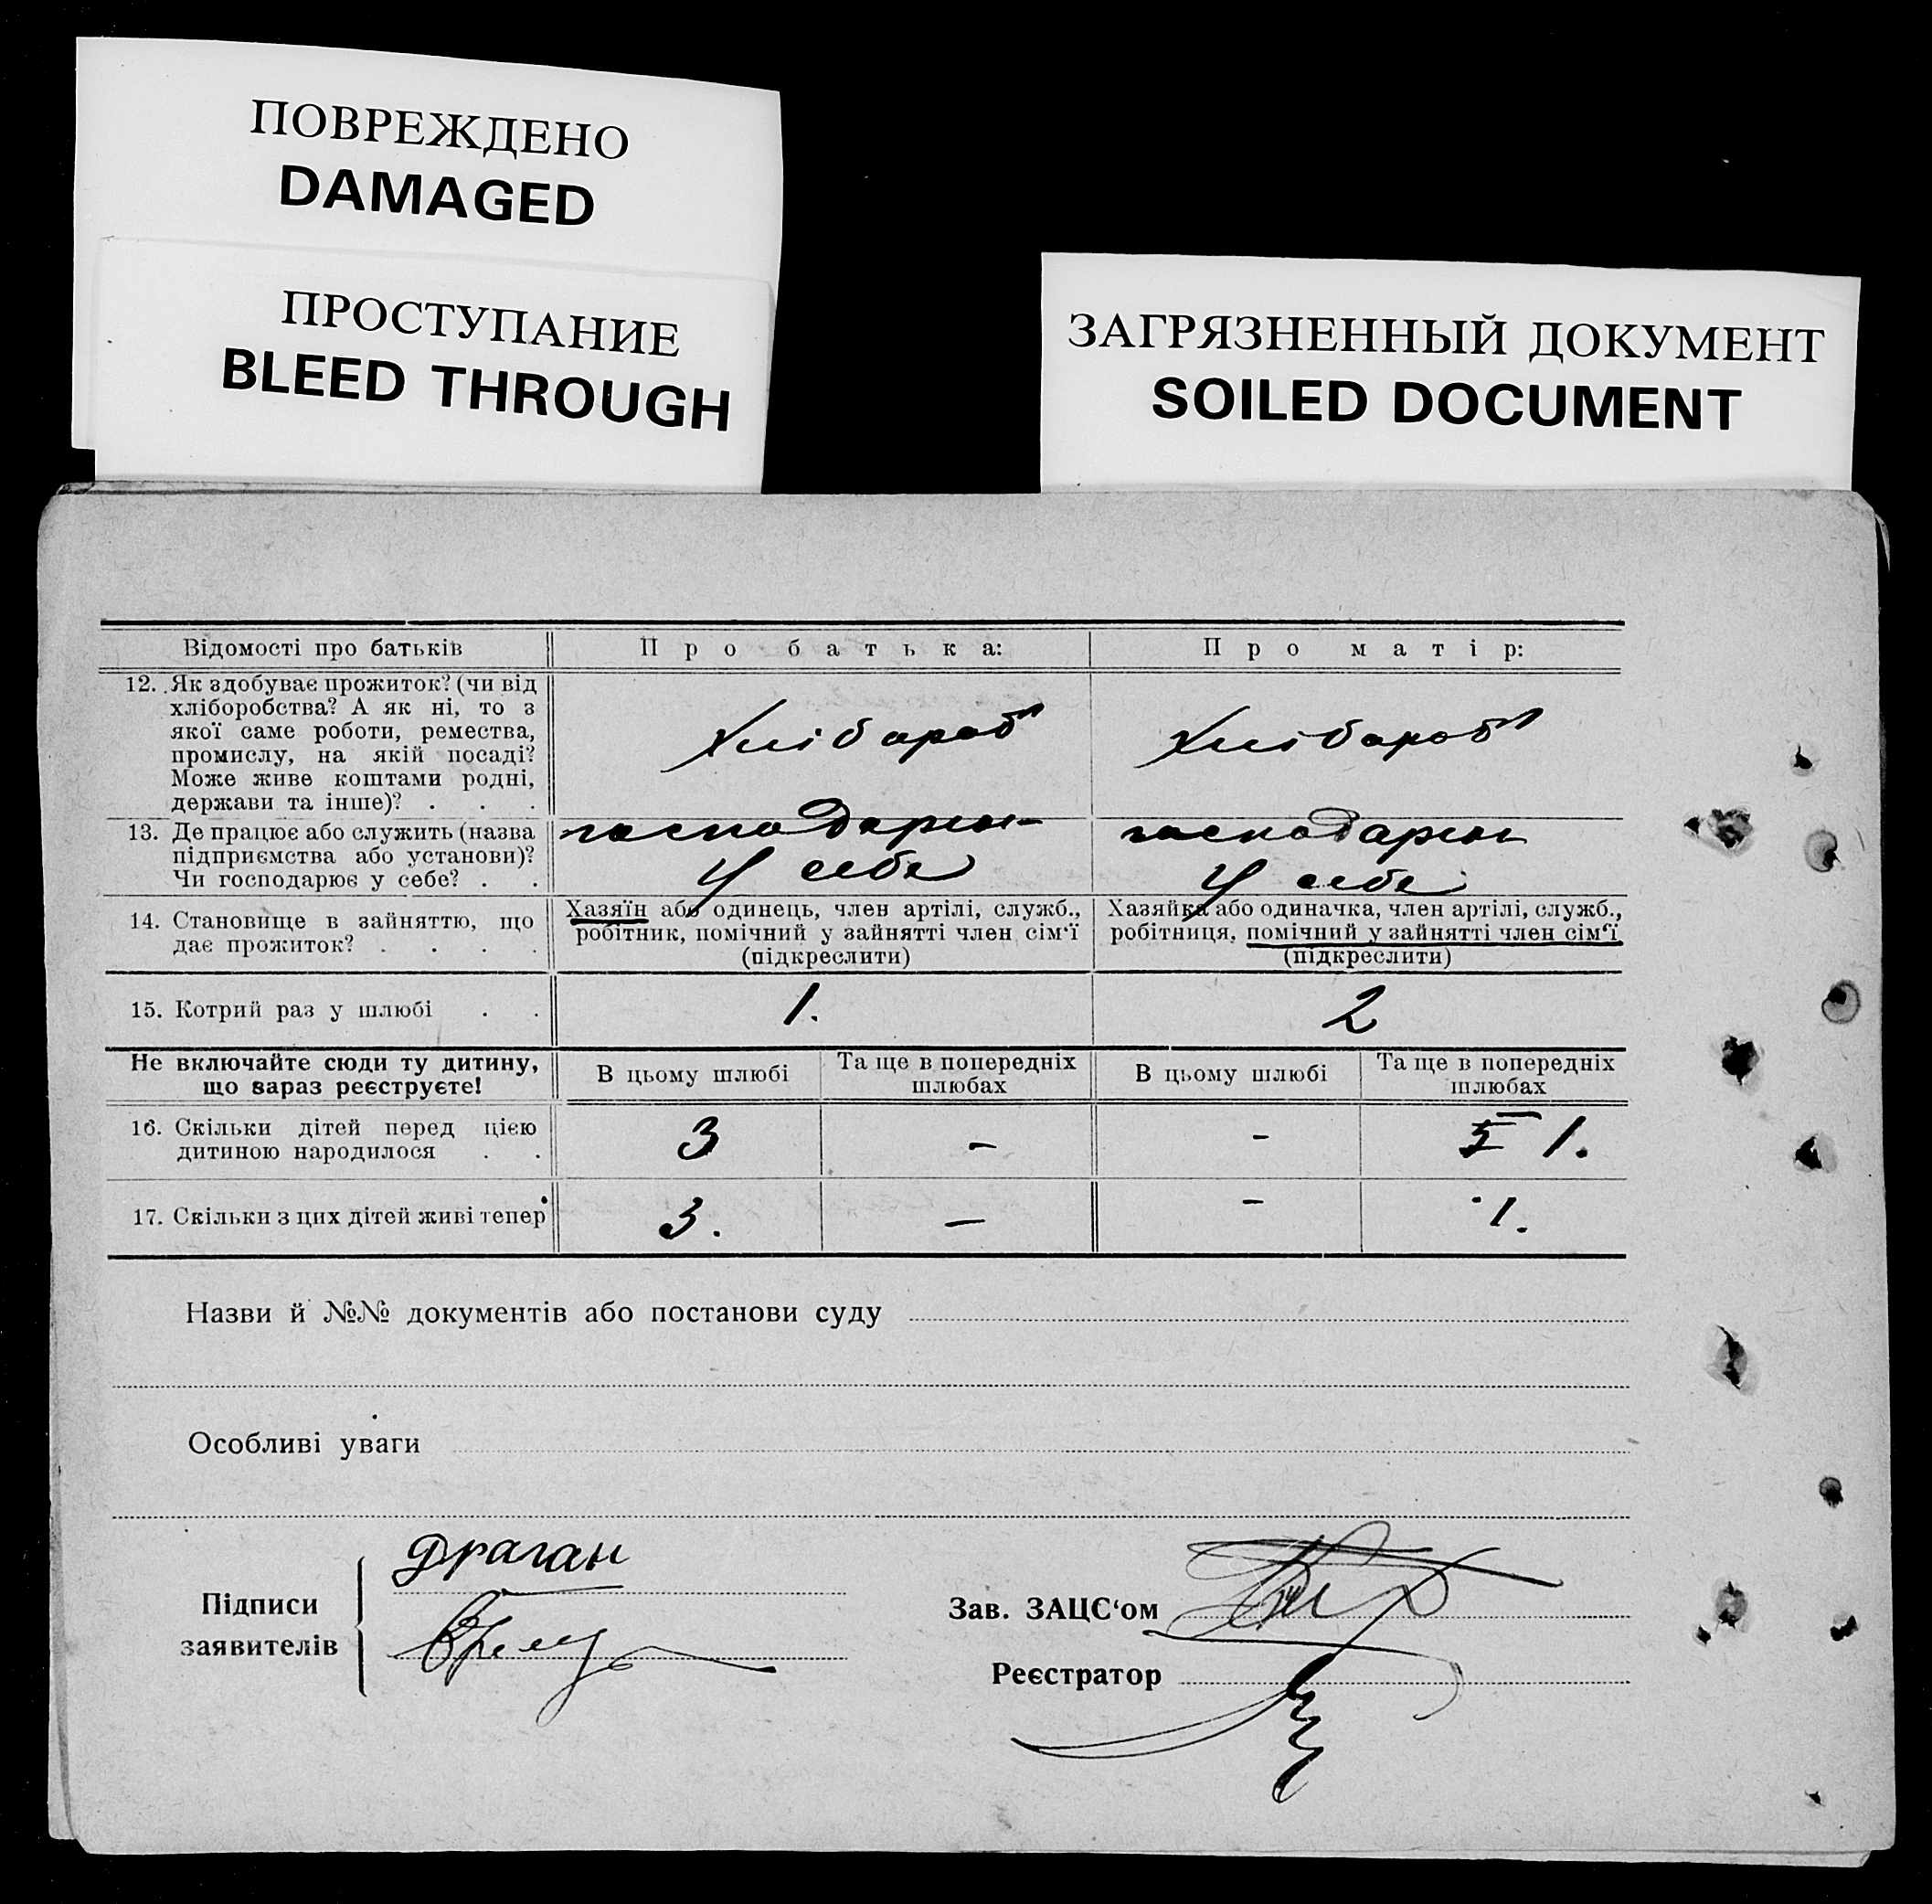 ПОВРЕЖДЕНО
DAMAGED
ПРОСТУПАНИЕ
BLEED THROUGH
ЗАГРЯЗНЕННЫЙ ДОКУМЕНТ
SOILED DOCUMENT
Відомості про батьків
Про батька:
Про матір:
12. Як здобуває прожиток? (чи від
хліборобства? А як ні, то з
якої саме роботи, ремества,
промислу, на якій посаді?
Може живе коштами родні,
держави та інше)? . . .
Хлібароб
Хлібароб
13. Де працює або служить (назва
підприємства або установи)?
Чи господарює у себе? . .
господарює
у себе
господарює
у себе
14. Становище в зайняттю, що
дає прожиток? . . . .
Хазяїн або одинець, член артілі, служб.,
робітник, помічний у зайнятті член сім‘ї
(підкреслити)
Хазяйка або одиначка, член артілі, служб.,
робітниця, помічний у зайнятті член сім‘ї
(підкреслити)
15. Котрий раз у шлюбі . .
1.
2
Не включайте сюди ту дитину,
що зараз реєструєте!
В цьому шлюбі
Та ще в попередніх
шлюбах
В цьому шлюбі
Та ще в попередніх
шлюбах
16. Скільки дітей перед цією
дитиною народилося . .
3
–
–
1.
17. Скільки з цих дітей живі тепер
3.
–
–
1.
Назви й №№ документів або постанови суду
Особливі уваги
Підписи
заявителів
Драган
Зав. ЗАЦС‘ом
Реєстратор